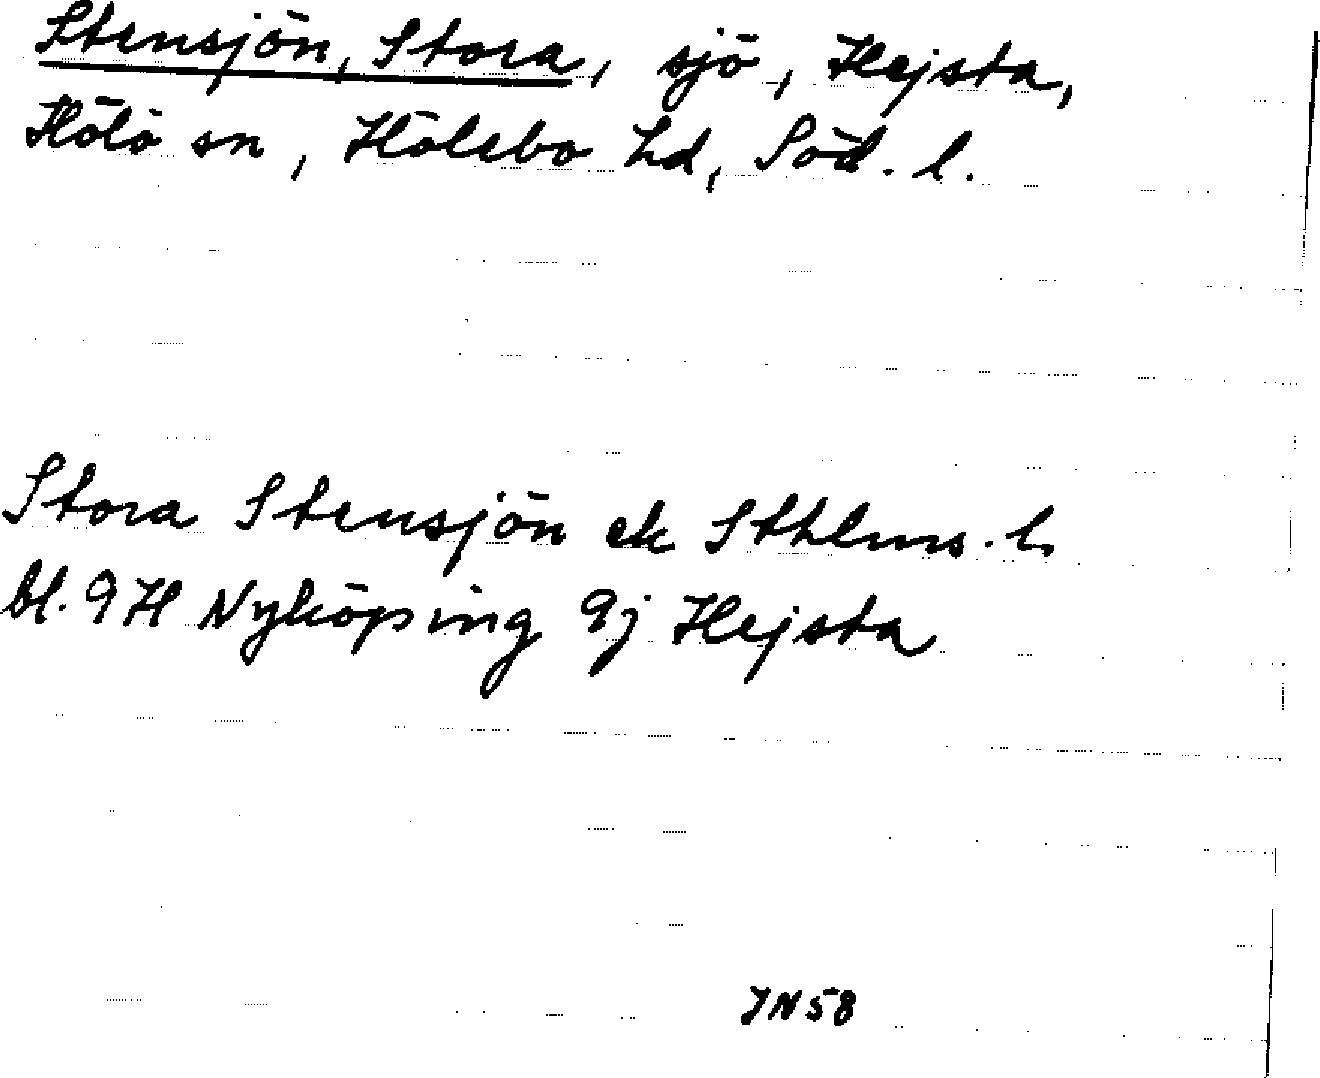 Stensjön, Stora, sjö, Hejsta,
Hölö sn, Hölebo hd, Söd. l.
Stora Stensjön ek Sthlms. l.
bl. 9H Nyköping 9j Hejsta
JN58